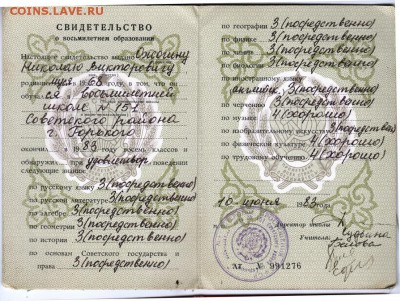 COINS.LAV.RU
СВИДЕТЕЛЬСТВО
о восьмилетнем образовании
Настоящее свидетельство выдано
Николаю Викторовичу
родившемуся в 1968 году, в том, что он
Восьмилетней
школе № 151
Советского района
г. Горького
окончил в 1983 году восемь классов и
обнаружил при удовлетвор. поведении
следующие знания:
по русскому языку 3(посредственно)
по русской литературе 3(посредственно)
по алгебре 3(посредственно)
по геометрии 3(посредственно)
по истории 3(посредственно)
по основам Советского государства и
права 3(посредственно)
по географии 3(посредственно)
по физике 3(посредственно)
по химии 3(посредственно)
по биологии 3(посредственно)
по иностранному языку
английск. 3(посредствен.)
по черчению 3(посредственно)
по музыке 4(хорошо)
по изобразительному искусству
по физической культуре 4(хорошо)
по трудовому обучению 4(хорошо)
10 июня 1983 года
Директор школы
Учителя:
№ 991276